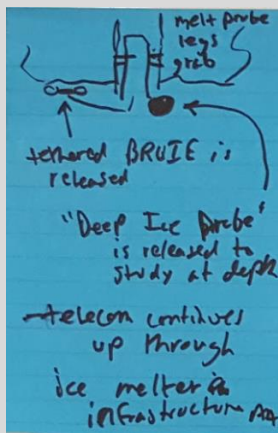 melt probe
legs
grab
tethered BRUIE is
released
"Deep Ice Probe"
is released to
study at depth
telecom continues
up through
ice melter
infrastructure